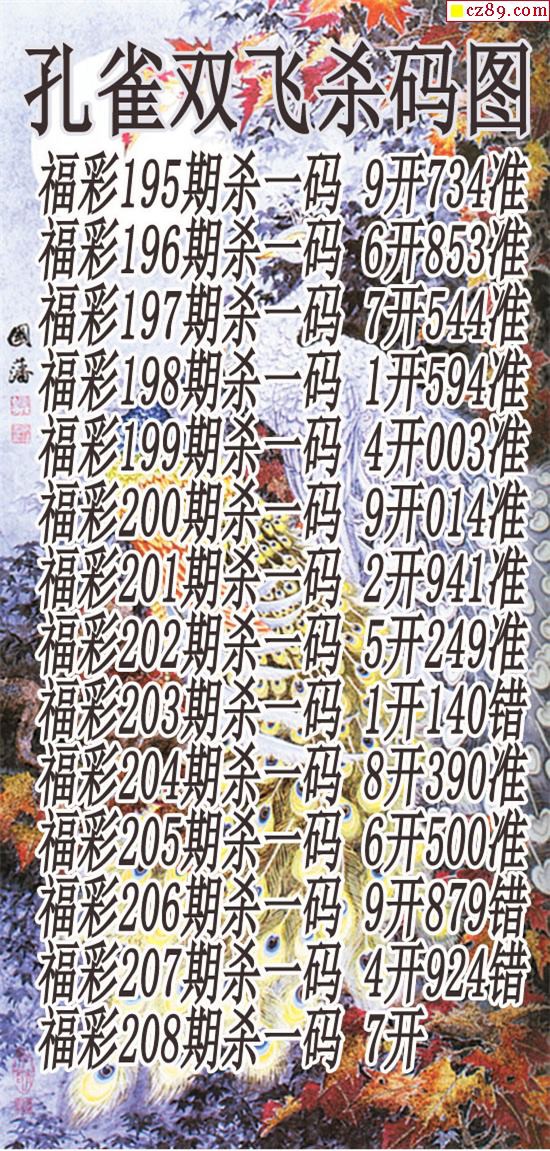 cz89.com
孔雀双飞杀码图
福彩195期杀一码 9开734准
福彩196期杀一码 6开853准
福彩197期杀一码 7开544准
福彩198期杀一码 1开594准
福彩199期杀一码 4开003准
福彩200期杀一码 9开014准
福彩201期杀一码 2开941准
福彩202期杀一码 5开249准
福彩203期杀一码 1开140错
福彩204期杀一码 8开390准
福彩205期杀一码 6开500准
福彩206期杀一码 9开879错
福彩207期杀一码 4开924错
福彩208期杀一码 7开
國藩